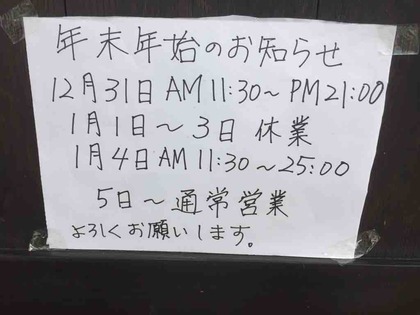 年末年始のお知らせ
12月31日 AM 11:30~PM 21:00
1月1日~3日 休業
1月4日 AM 11:30~25:00
5日~通常営業
よろしくお願いします。